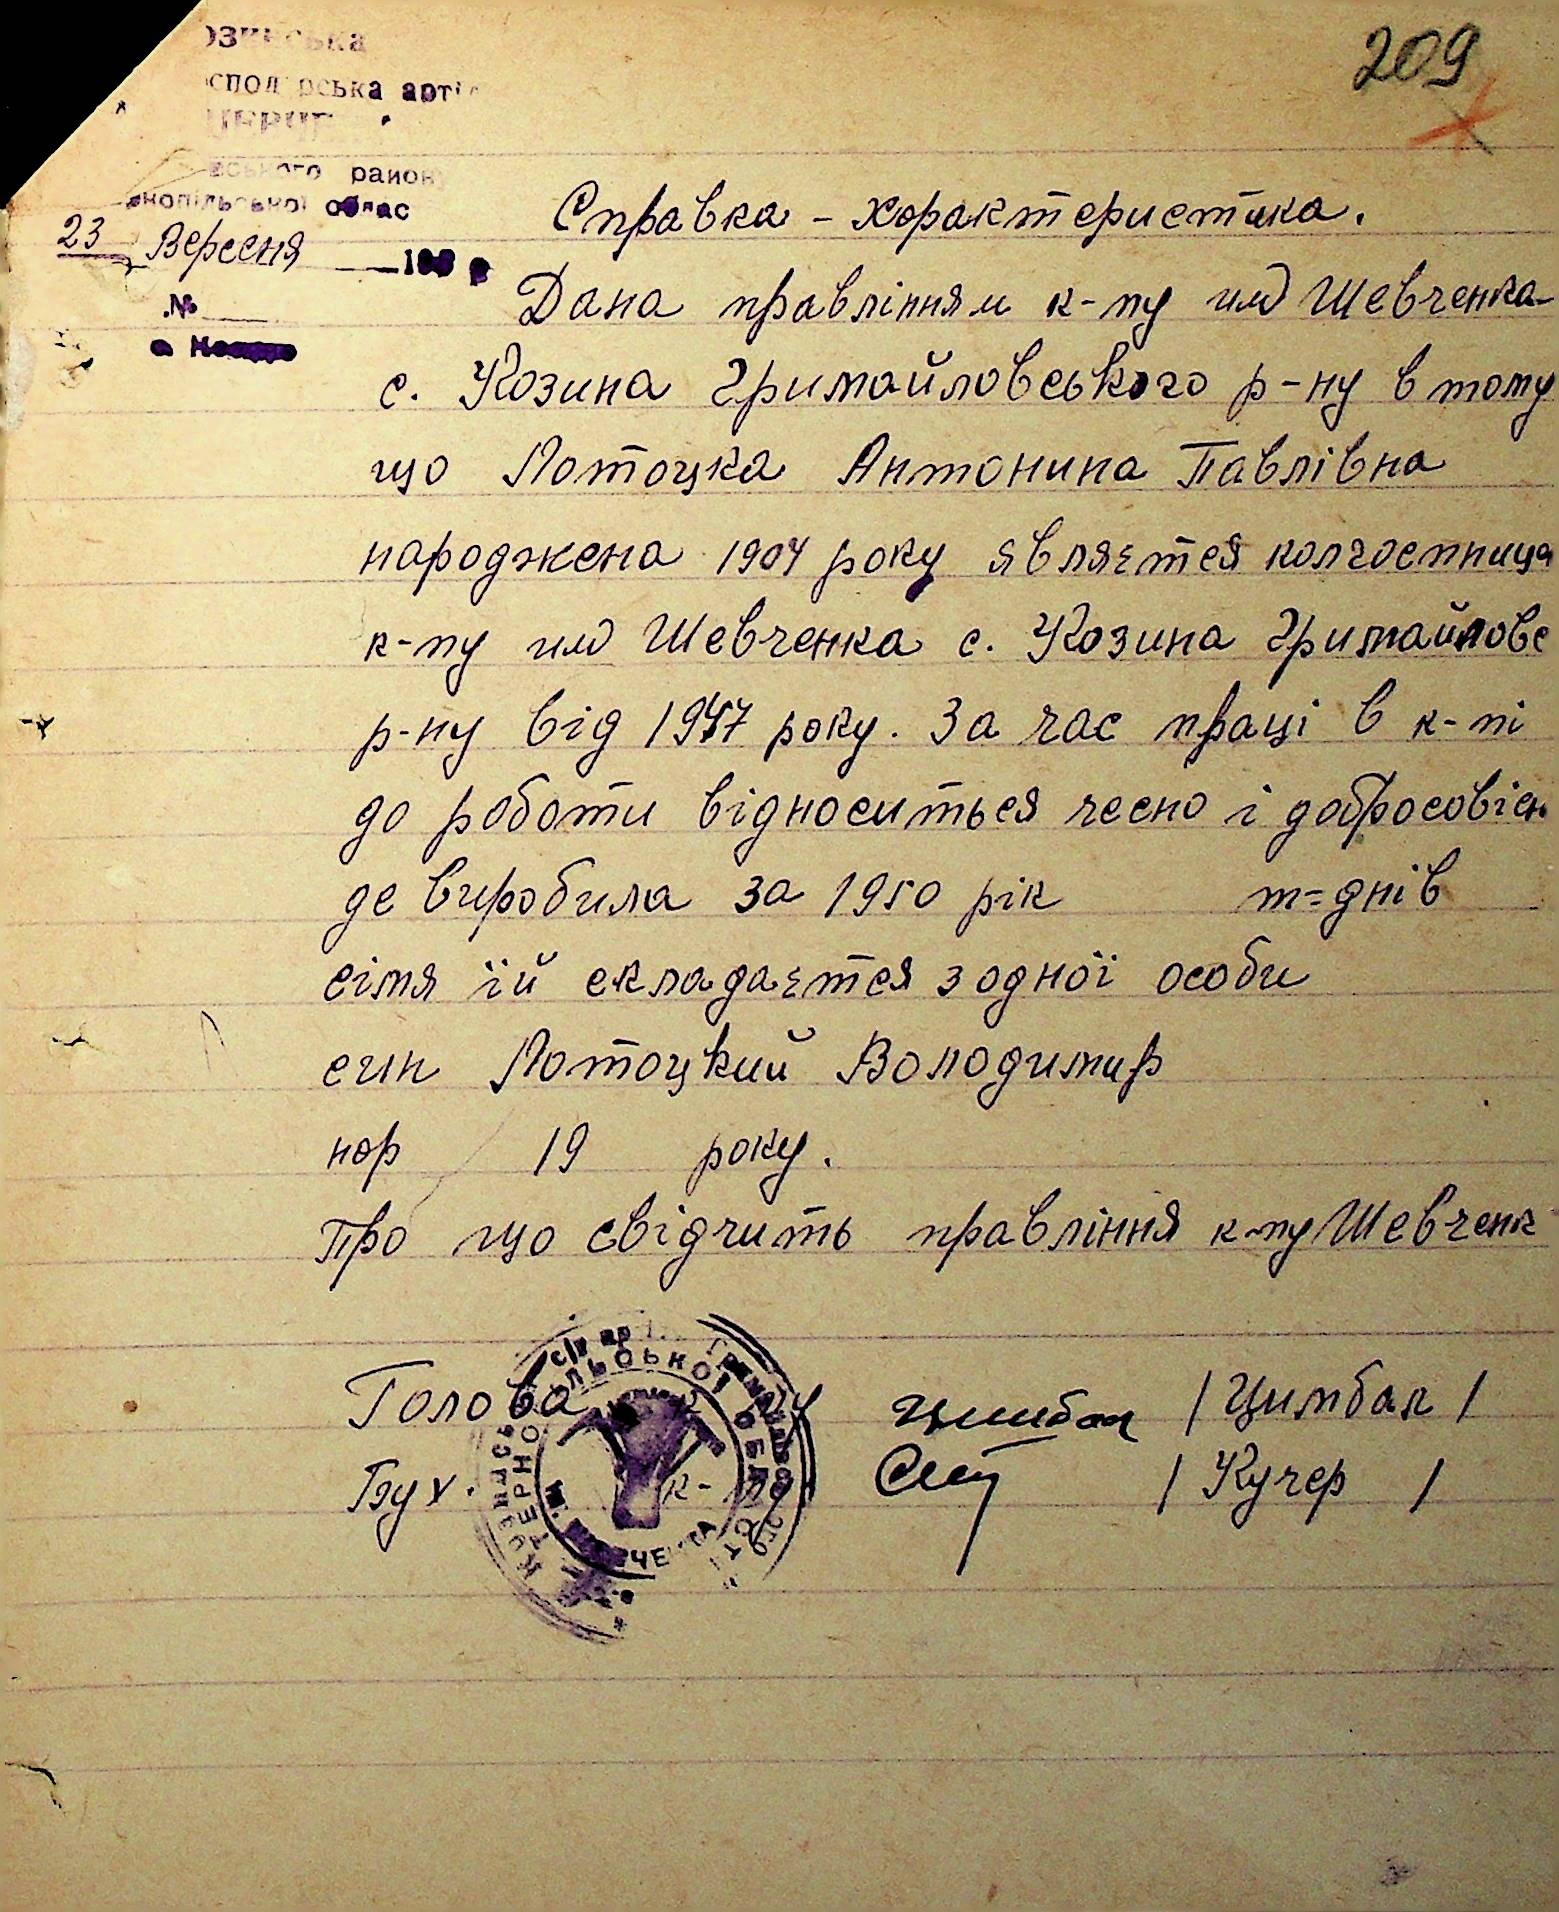 209
спол рська арті
ського району
нопільської облас
23 Вересня 19
№
Справка - характеристика.
Дана правлінням к-пу им Шевченка
с. Козина Гримайловського р-ну в тому
що Потоцка Антонина Павлівна
народжена 1904 року являєтся колгоспница
к-пу им Шевченка с. Козина Гримайловс
р-ну від 1947 року. За час праці в к-пі
до роботи відноситься чесно і добросовісн
де виробила за 1950 рік т=днів
сімя їй складаєтся з одної особи
син Потоцкий Володимир
нар 19 року.
Про що свідчить правління к-пу Шевченк
Голова к-пу Цимбал / Цимбал /
Бух. к-пу / Кучер /